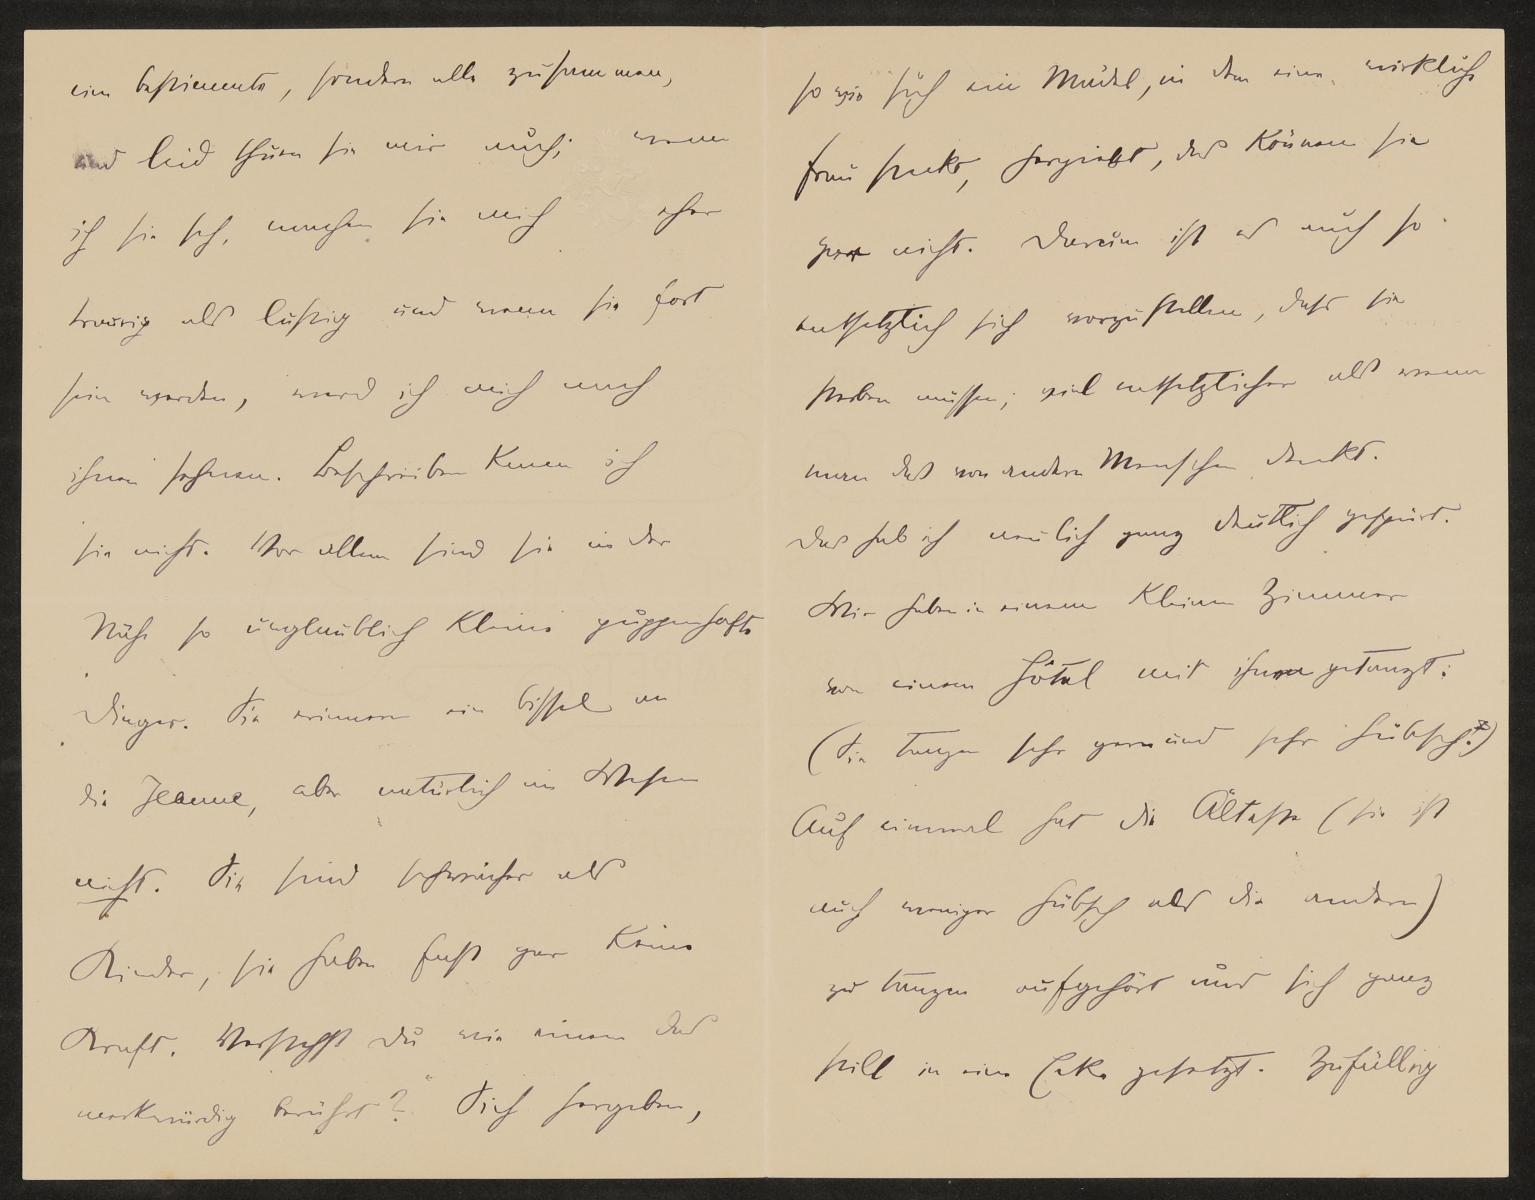 eine bestimmte, sondern alle zusammen,
und leid thun sie mir auch; wenn
ich sie seh, machen sie mich eher
traurig als lustig und wenn sie fort
sein werden, werd ich mich nach
ihnen sehnen. Beschreiben kann ich
sie nicht. Vor allem sind sie in der
Nähe so unglaublich kleine puppenhafte
Dinger. Sie erinnern ein bissel an
die Jeanne, aber natürlich im Wesen
nicht. Sie sind schwächer als
Kinder, sie haben fast gar keine
Kraft. Verstehst Du wie einen das
merkwürdig berührt? Sich hergeben,
so wie sich ein Mädel, in dem eine wirkliche
Frau steckt, hergiebt, das können sie
gar nicht. Darum ist es auch so
entsetzlich sich vorzustellen, dass sie
sterben müssen; viel entsetzlicher als wenn
man das von andern Menschen denkt.
Das hab ich neulich ganz deutlich gespürt.
Wir haben in einem kleinen Zimmer
von einem Hôtel mit ihnen getanzt:
(Sie tanzen sehr gern und sehr hübsch.)
Auf einmal hat die Älteste (sie ist
auch weniger hübsch als die andern)
zu tanzen aufgehört und sich ganz
still in eine Ecke gesetzt. Zufällig